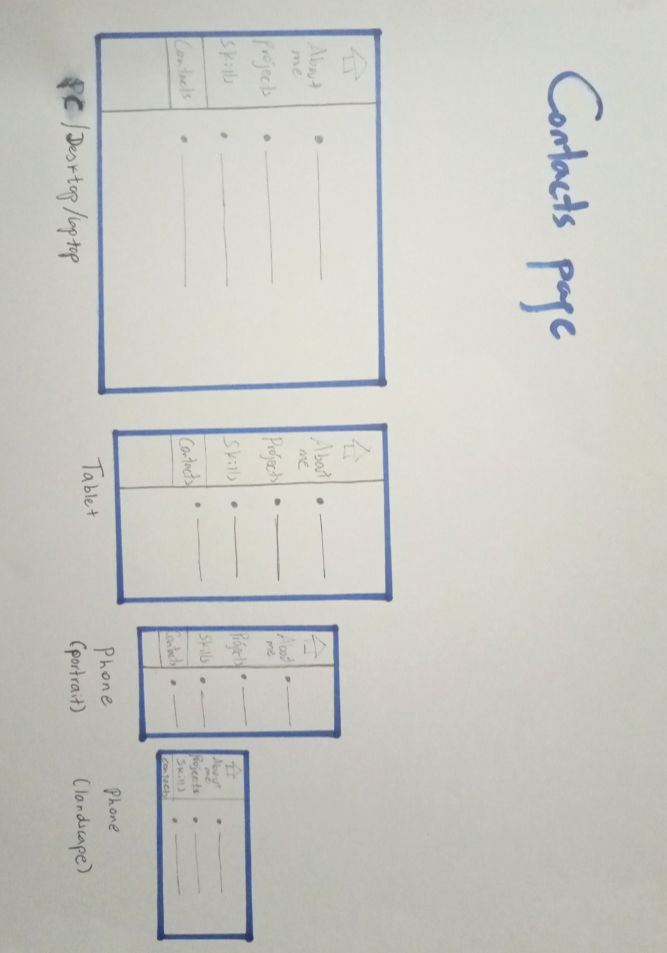 Contacts page
About
me
Projects
Skills
Contacts
PC/Desktop/laptop
About
me
Projects
Skills
Contacts
Tablet
About
me
Projects
Skills
Contacts
Phone
(portrait)
About
me
Projects
Skills
Contacts
Phone
(landscape)